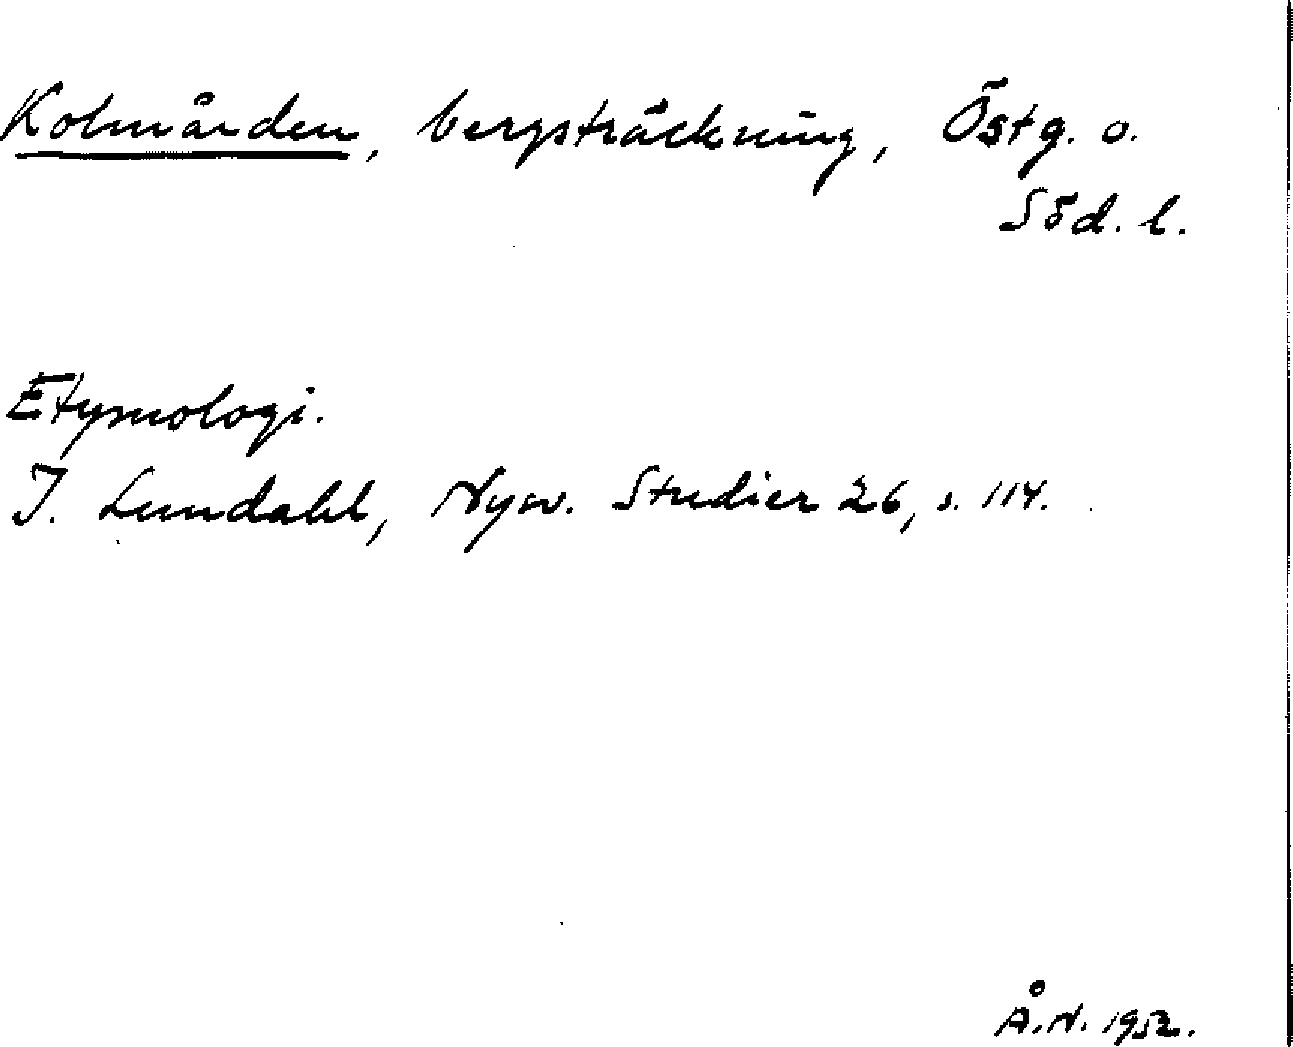 Kolmården, bergsträckning, Östg. o.
Söd. l.
Etymologi.
I. Lundahl, Nysv. Studier 26, s. 114.
Å.N. 1952.